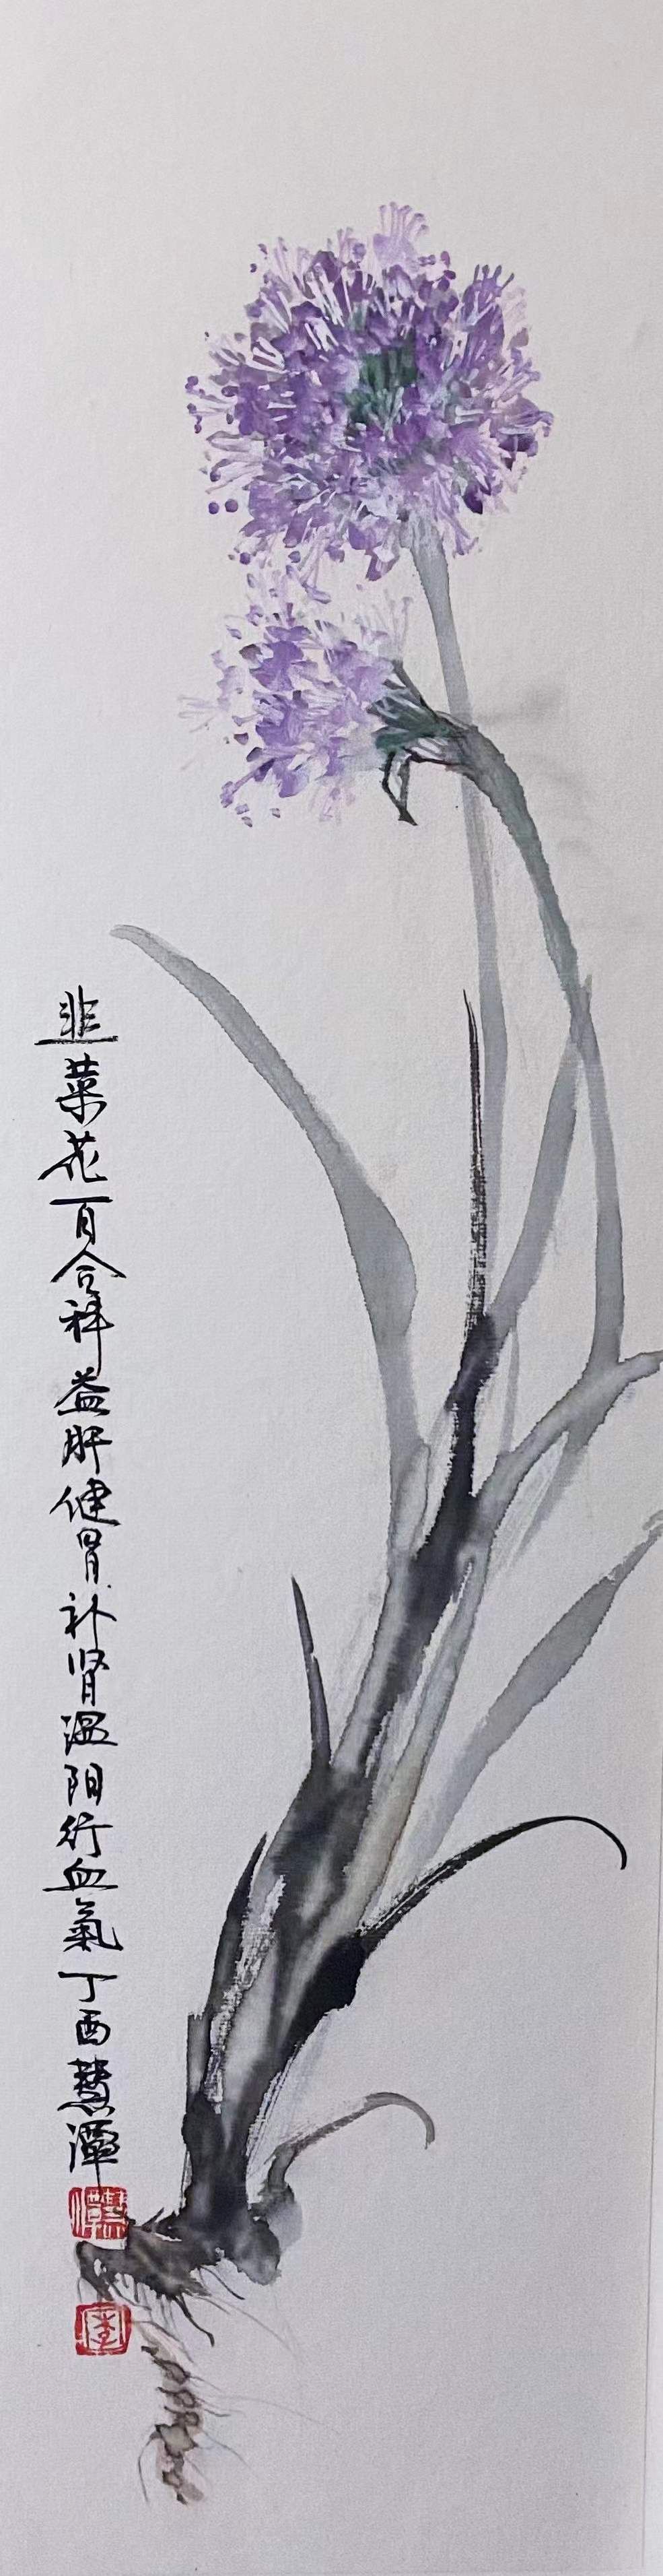 韭菜花百合科益肝健胃补肾温阳行血氣丁酉慧潭
慧潭
李